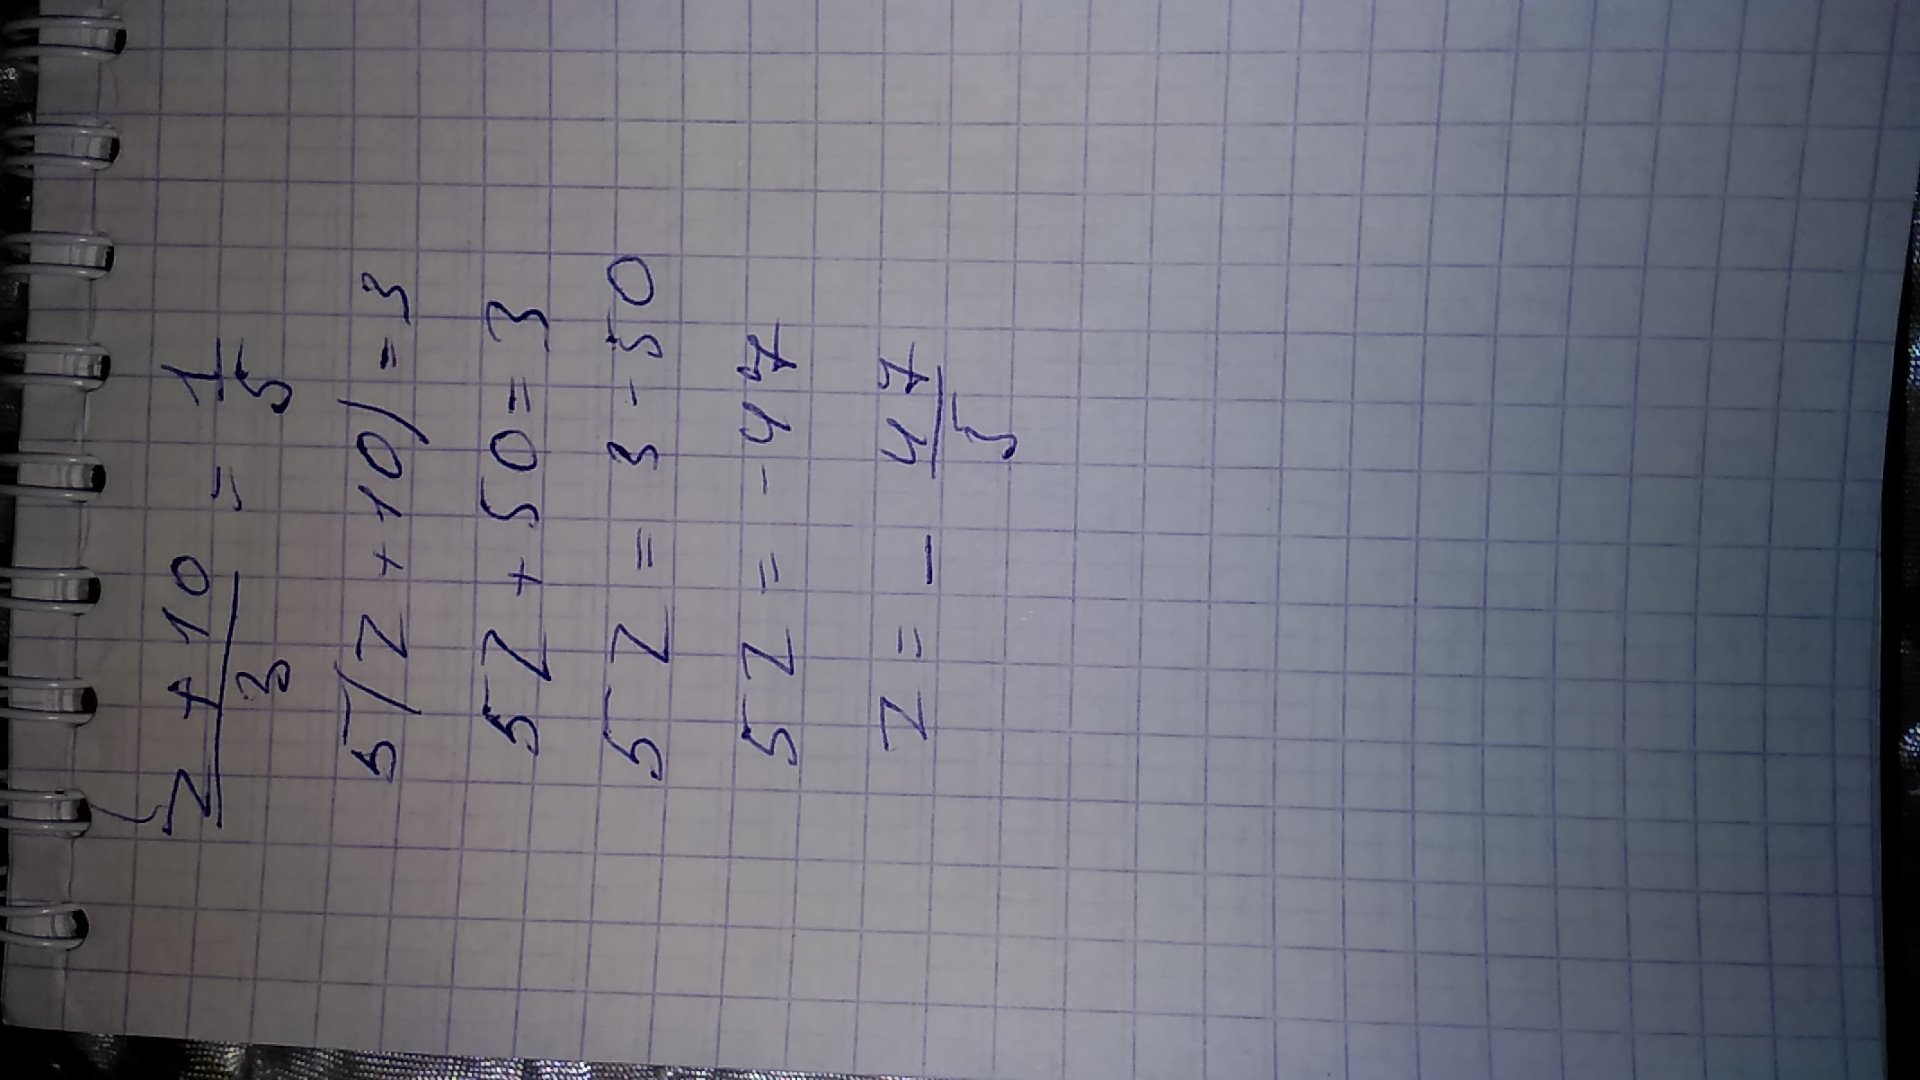 z + 10 / 3 = 1 / 5
5(z + 10) = 3
5z + 50 = 3
5z = 3 - 50
5z = -47
z = - 47 / 5